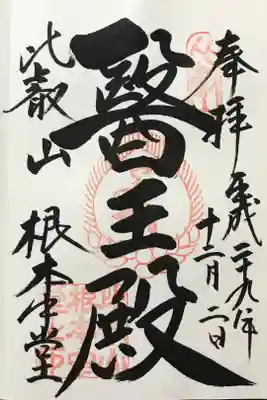 奉拝 平成二十九年
十二月二日
醫王殿
比叡山 根本中堂